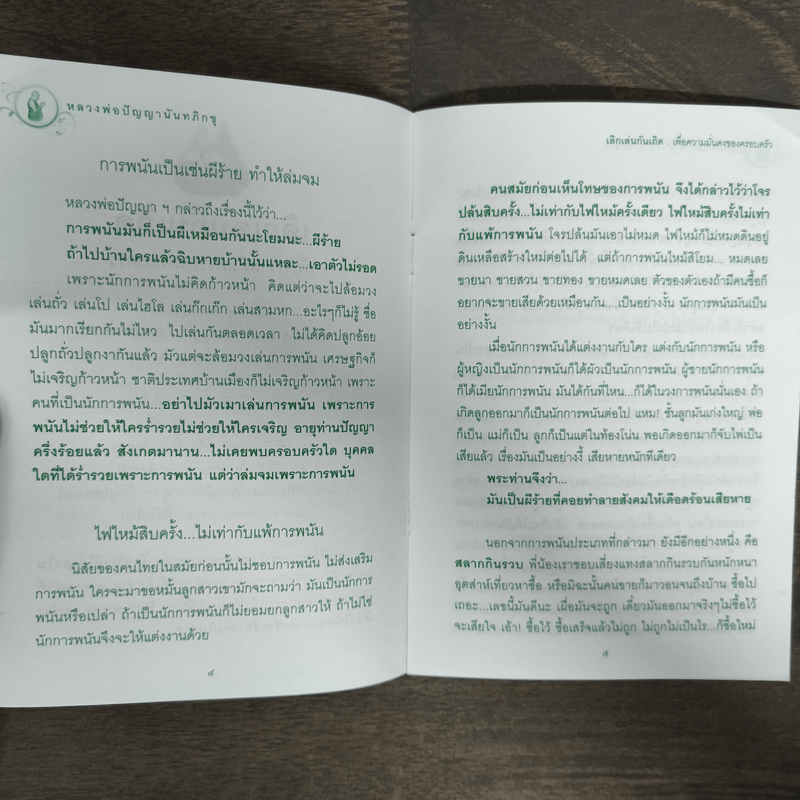 หลวงพ่อปัญญานันทภิกขุ
การพนันเป็นเช่นผีร้าย ทำให้ล่มจม
หลวงพ่อปัญญา ฯ กล่าวถึงเรื่องนี้ไว้ว่า...
การพนันมันก็เป็นผีเหมือนกันนะโยมนะ...ผีร้าย
ถ้าไปบ้านใครแล้วฉิบหายบ้านนั้นแหละ...เอาตัวไม่รอด
เพราะนักการพนันไม่คิดก้าวหน้า คิดแต่ว่าจะไปล้อมวง
เล่นถั่ว เล่นโป เล่นไฮโล เล่นกั๊กเก๊ก เล่นสามหก...อะไรๆก็ไม่รู้ ชื่อ
มันมากเรียกกันไม่ไหว ไปเล่นกันตลอดเวลา ไม่ได้คิดปลูกอ้อย
ปลูกถั่วปลูกงากันแล้ว มัวแต่จะล้อมวงเล่นการพนัน เศรษฐกิจก็
ไม่เจริญก้าวหน้า ชาติประเทศบ้านเมืองก็ไม่เจริญก้าวหน้า เพราะ
คนที่เป็นนักการพนัน...อย่าไปมัวเมาเล่นการพนัน เพราะการ
พนันไม่ช่วยให้ใครร่ำรวยไม่ช่วยให้ใครเจริญ อายุท่านปัญญา
ครึ่งร้อยแล้ว สังเกตมานาน...ไม่เคยพบครอบครัวใด บุคคล
ใดที่ได้ร่ำรวยเพราะการพนัน แต่ว่าล่มจมเพราะการพนัน
ไฟไหม้สิบครั้ง...ไม่เท่ากับแพ้การพนัน
นิสัยของคนไทยในสมัยก่อนนั้นไม่ชอบการพนัน ไม่ส่งเสริม
การพนัน ใครจะมาขอหมั้นลูกสาวเขามักจะถามว่า มันเป็นนักการ
พนันหรือเปล่า ถ้าเป็นนักการพนันก็ไม่ยอมยกลูกสาวให้ ถ้าไม่ใช่
นักการพนันจึงจะให้แต่งงานด้วย
๔
เลิกเล่นกันเถิด : เพื่อความมั่นคงของครอบครัว
คนสมัยก่อนเห็นโทษของการพนัน จึงได้กล่าวไว้ว่าโจร
ปล้นสิบครั้ง...ไม่เท่ากับไฟไหม้ครั้งเดียว ไฟไหม้สิบครั้งไม่เท่า
กับแพ้การพนัน โจรปล้นมันเอาไม่หมด ไฟไหม้ก็ไม่หมดดินอยู่
ดินเหลือสร้างใหม่ต่อไปได้ แต่ถ้าการพนันไหม้สิโยม... หมดเลย
ขายนา ขายสวน ขายทอง ขายหมดเลย ตัวของตัวเองถ้ามีคนซื้อก็
อยากจะขายเสียด้วยเหมือนกัน....เป็นอย่างงั้น นักการพนันมันเป็น
อย่างงั้น
เมื่อนักการพนันได้แต่งงานกับใคร แต่งกับนักการพนัน หรือ
ผู้หญิงเป็นนักการพนันก็ได้ผัวเป็นนักการพนัน ผู้ชายนักการพนัน
ก็ได้เมียนักการพนัน มันได้กันที่ไหน...ก็ได้ในวงการพนันนั่นเอง ถ้า
เกิดลูกออกมาก็เป็นนักการพนันต่อไป แหม! ชั้นลูกมันเก่งใหญ่ พ่อ
ก็เป็น แม่ก็เป็น ลูกก็เป็นแต่ในท้องโน่น พอเกิดออกมาก็จับไพ่เป็น
เสียแล้ว เรื่องมันเป็นอย่างงี้ เสียหายหนักทีเดียว
พระท่านจึงว่า...
มันเป็นผีร้ายที่คอยทำลายสังคมให้เดือดร้อนเสียหาย
นอกจากการพนันประเภทที่กล่าวมา ยังมีอีกอย่างหนึ่ง คือ
สลากกินรวบ พี่น้องเราชอบเสี่ยงแทงสลากกินรวบกันหนักหนา
อุตส่าห์เที่ยวหาซื้อ หรือมิฉะนั้นคนขายก็มาวอนจนถึงบ้าน ซื้อไป
เถอะ...เลขนี้มันดีนะ เผื่อมันจะถูก เดี๋ยวมันออกมาจริงๆไม่ซื้อไว้
จะเสียใจ เอ้า! ซื้อไว้ ซื้อเสร็จแล้วไม่ถูก ไม่ถูกไม่เป็นไร...ก็ซื้อใหม่
๕